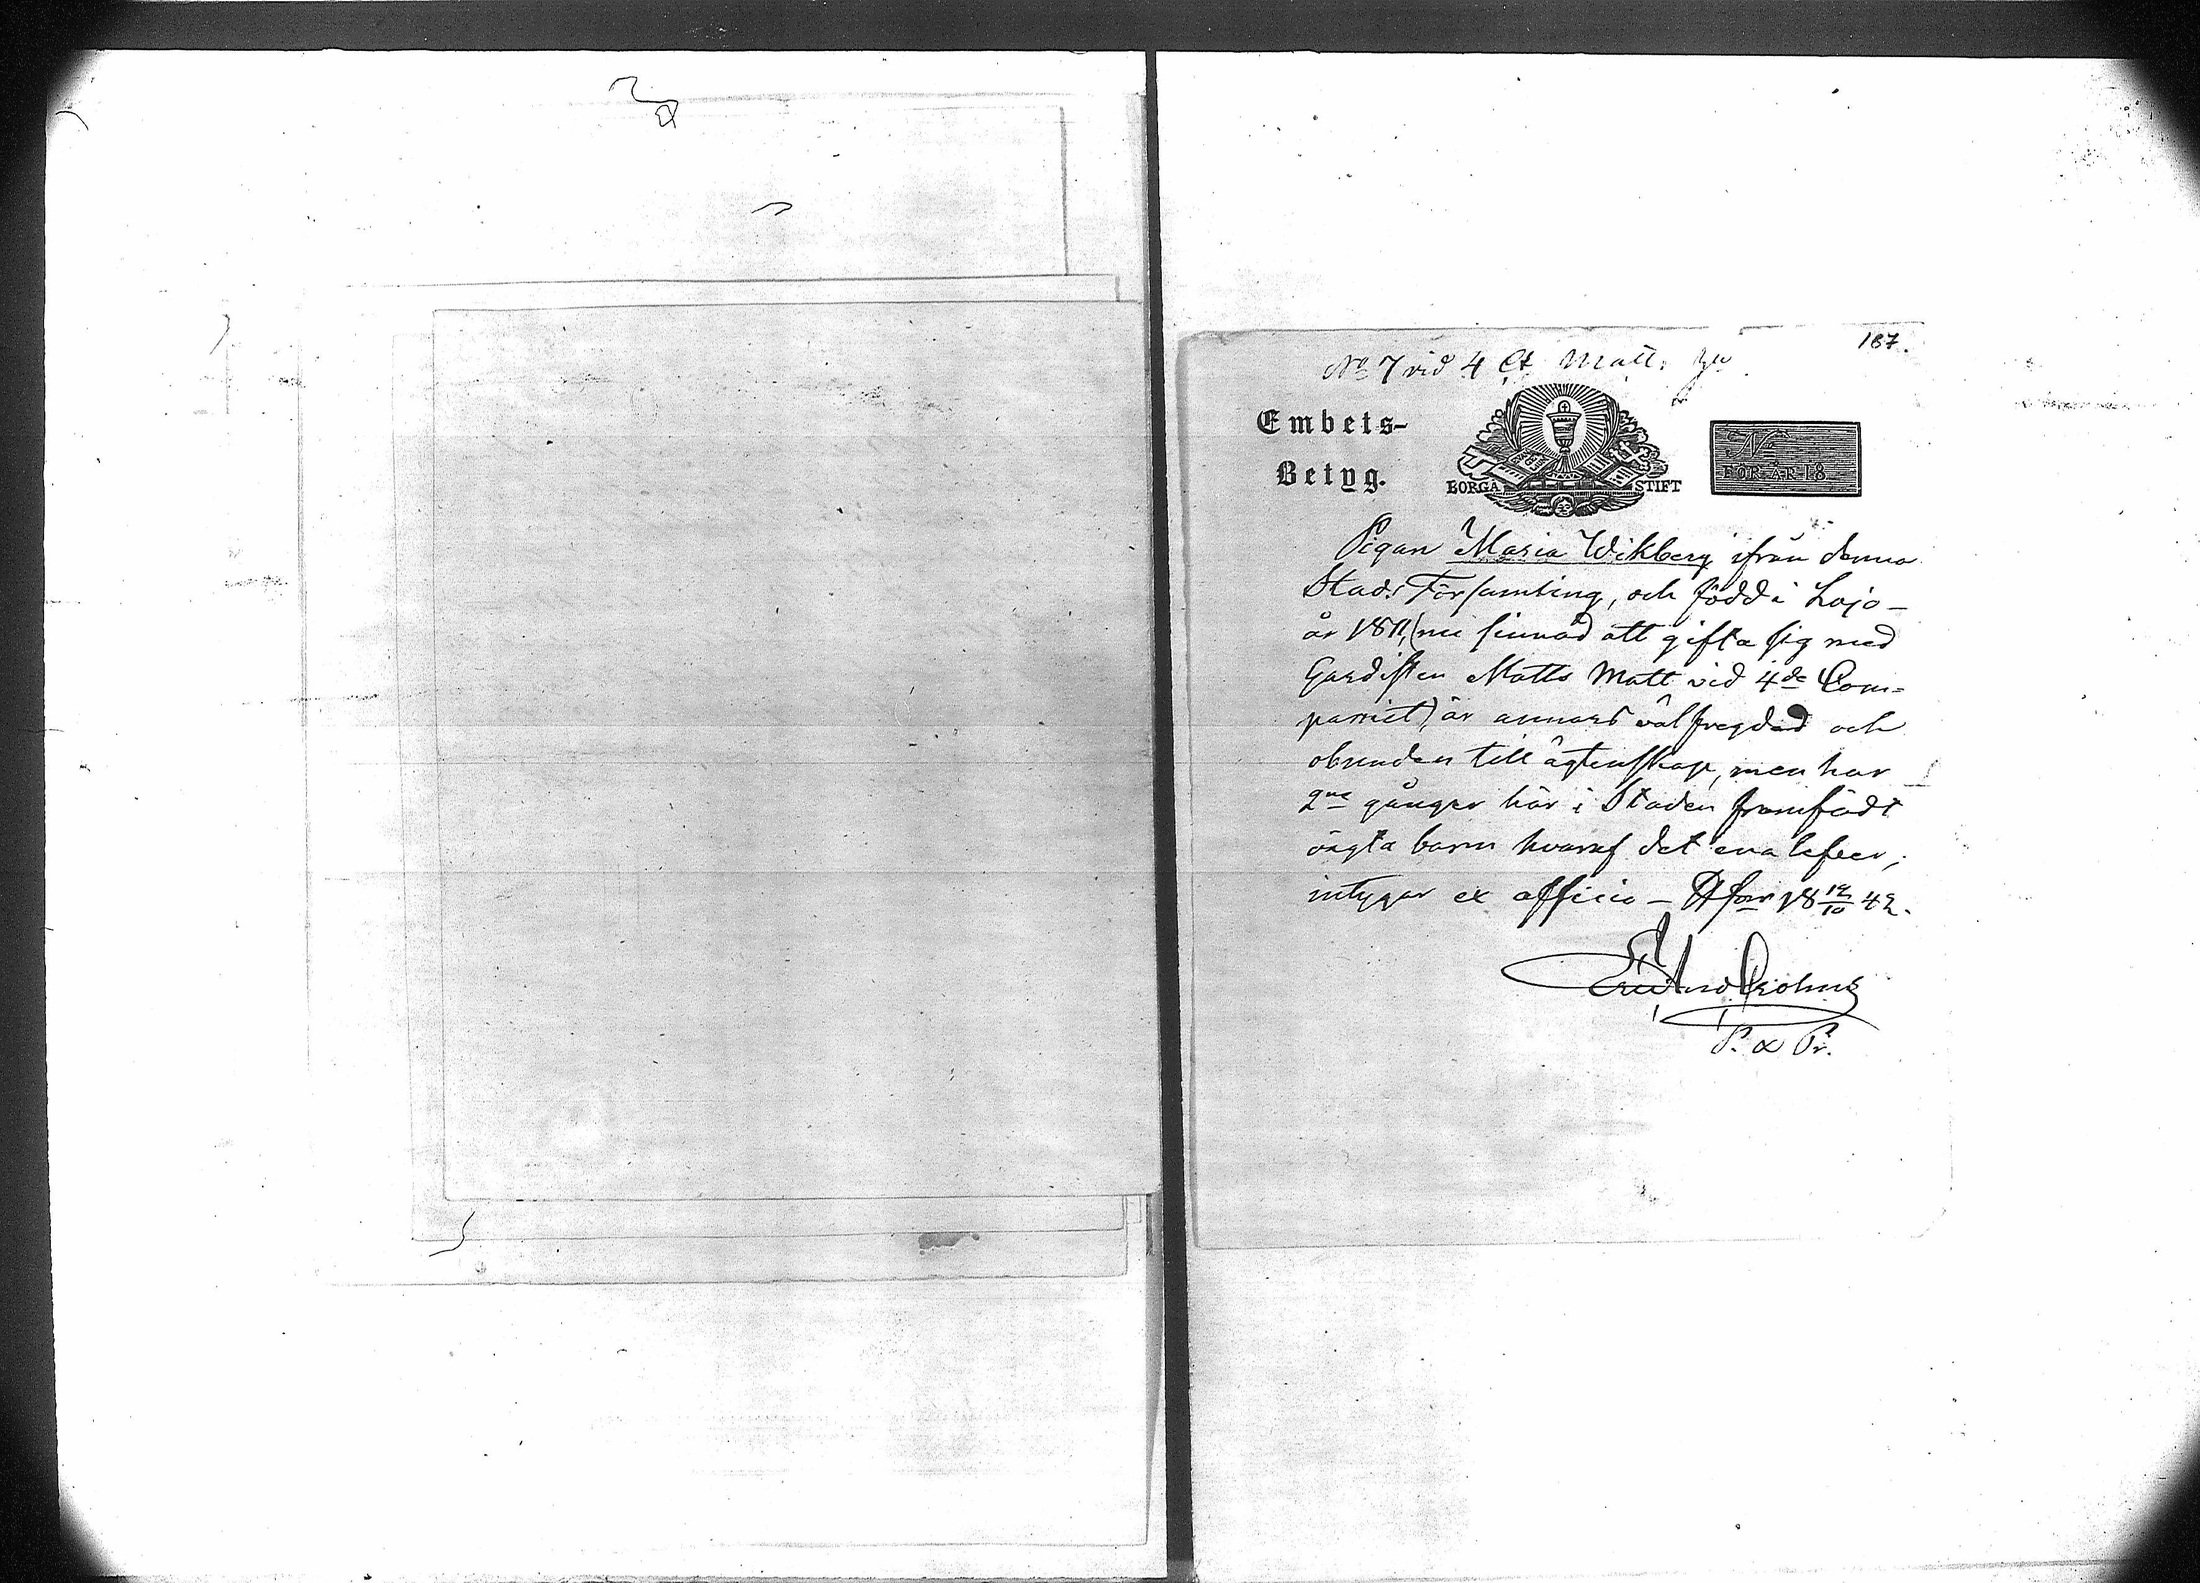 187.
No 7 vid 4 Ct Matt,
Embets-
Betyg.
BORGA STIFT
No
FÖR ÅR 18
Pigan Maria Wikberg ifrån denna
Stads Församling, och född i Lojo –
år 1811, (nu sinnad att gifta sig med
Gardisten Matts Matt vid 4de Com=
paniet) är annars välfregdad och
obunden till ägtenskap, men har
2ne gånger här i Staden framfödt
oägta barn hvaraf det ena lefver,
intygar ex officio – H:fors 18 12/10 42.
P. &